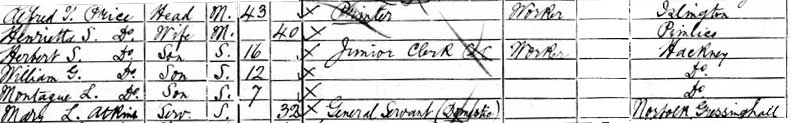 Alfred T. Price Head M. 43 X Printer Worker Islington
Henrietta S. Do Wife M. 40 X Pimlico
Herbert S. Do Son S. 16 X Junior Clerk Worker Hackney
William G. Do Son S. 12 X Do.
Montague L. Do Son S. 7 X Do.
Mary L. Atkins Serv. S. 32 X General Servant (Domestic) Norfolk Gressinghall